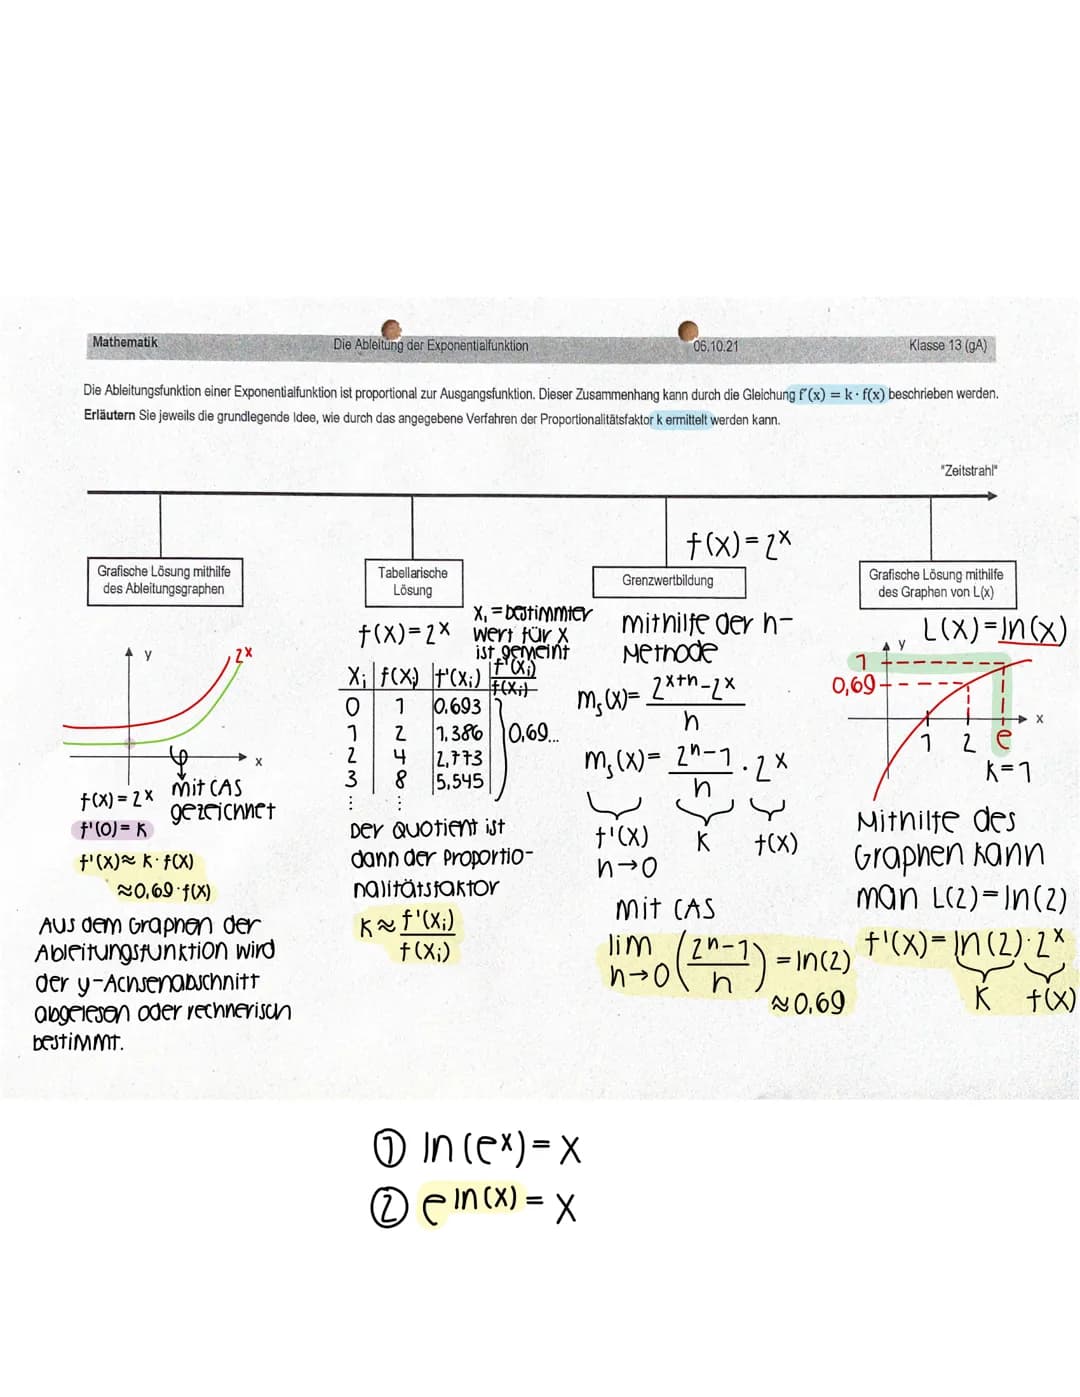 Mathematik Die Ableitung der Exponentialfunktion 06.10.21 Klasse 13 (gA)
Die Ableitungsfunktion einer Exponentialfunktion ist proportional zur Ausgangsfunktion. Dieser Zusammenhang kann durch die Gleichung f'(x) = k · f(x) beschrieben werden.
Erläutern Sie jeweils die grundlegende Idee, wie durch das angegebene Verfahren der Proportionalitätsfaktor k ermittelt werden kann.
"Zeitstrahl"
Grafische Lösung mithilfe
des Ableitungsgraphen
y
2ˣ
x
mit CAS
gezeichnet
f(x) = 2ˣ
f'(0) = K
f'(x) ≈ K · f(x)
≈ 0,69 · f(x)
Aus dem Graphen der
Ableitungsfunktion wird
der y-Achsenabschnitt
abgelesen oder rechnerisch
bestimmt.
Tabellarische
Lösung
f(x) = 2ˣ
Xᵢ = bestimmter
Wert für X
ist gemeint
Xᵢ f(Xᵢ) f'(Xᵢ) f'(Xᵢ)/f(Xᵢ)
0 1 0.693
1 2 1,386 0,69...
2 4 2,773
3 8 5,545
⋮ ⋮
Der Quotient ist
dann der Proportio-
nalitätsfaktor
K ≈ f'(Xᵢ)/f(Xᵢ)
f(x) = 2ˣ
Grenzwertbildung
mithilfe der h-
Methode
mₛ(x) = (2ˣ⁺ʰ - 2ˣ)/h
mₛ(x) = (2ʰ - 1)/h · 2ˣ
f'(x) K f(x)
h→0
mit CAS
lim h→0 ((2ʰ - 1)/h) = ln(2)
≈ 0,69
Grafische Lösung mithilfe
des Graphen von L(x)
L(x) = ln(x)
y
1
0,69
x
1 2 e
K = 1
Mithilfe des
Graphen kann
man L(2) = ln(2)
f'(x) = ln(2) · 2ˣ
K f(x)
① ln(eˣ) = x
② e^ln(x) = x